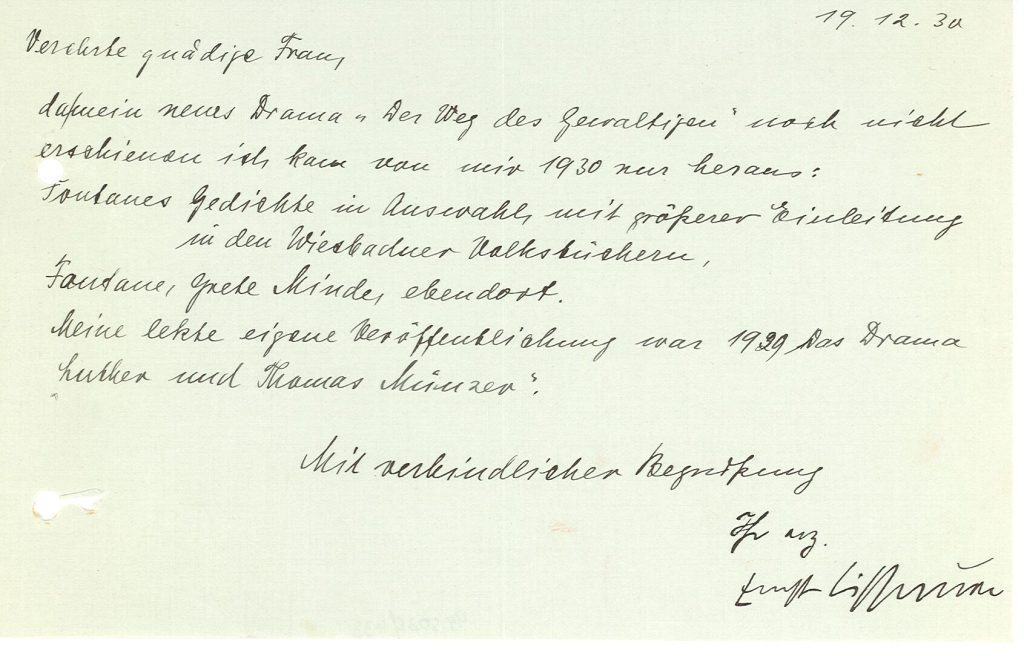 19. 12. 30
Verehrte gnädige Frau,
da mein neues Drama „Der Weg des Gewaltigen" noch nicht
erschienen ist, kam von mir 1930 nur heraus:
Fontanes Gedichte in Auswahl, mit größerer Einleitung
in den Wiesbadner Volksbüchern,
Fontane, Grete Minde, ebendort.
Meine letzte eigene Veröffentlichung war 1929 das Drama
„Luther und Thomas Münzer".
Mit verbindlicher Begrüßung
Ihr erg.
Ernst Lissauer